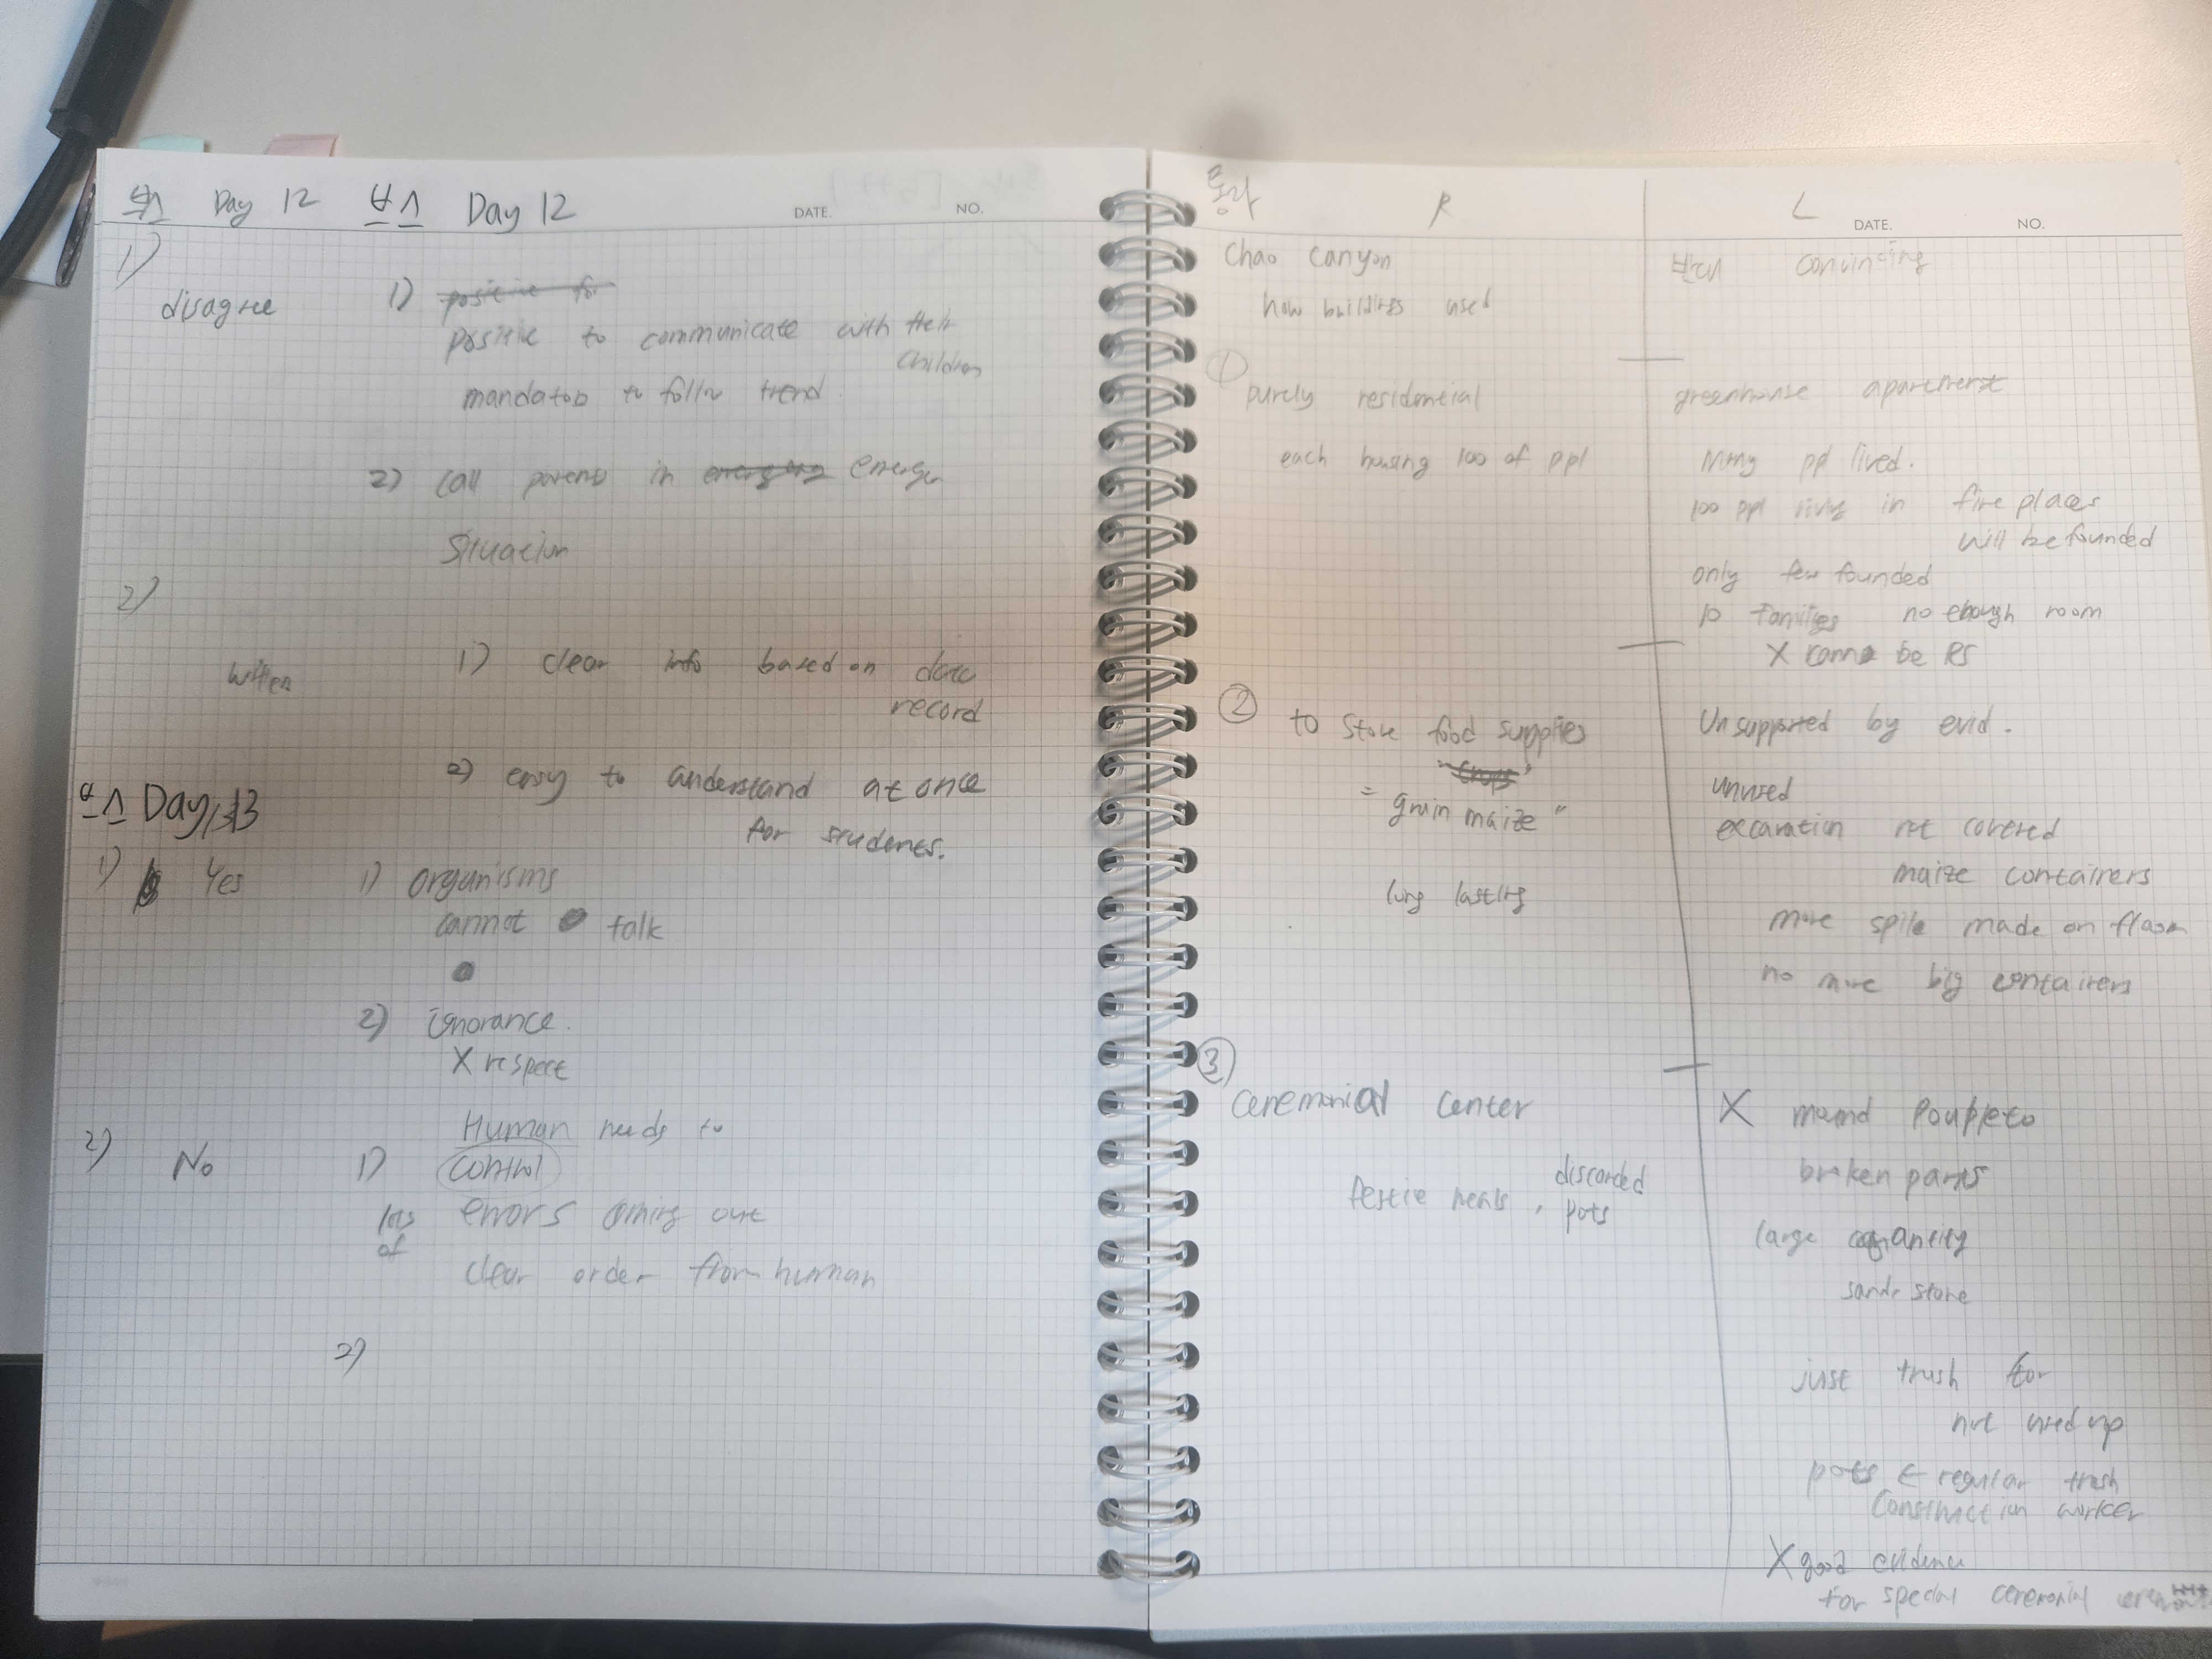 Day 12 보스 Day 12
DATE. NO.
1)
disagree 1) positive for
positive to communicate with their
children
mandatob to follow trend
2) call parents in emergen
situation
2)
written 1) clear info based on data
record
2) easy to understand at once
for students.
보스 Day 13
1) Yes 1) organisms
cannot talk
2) ignorance.
X respect
2) No 1) Human needs to
control
lots of errors coming out
clear order from human
2)
통라 R L
DATE. NO.
Chao Canyon
how buildings used
반대 convincing
①
purely residential
each housing 100 of ppl
greenhouse apartment
Many ppl lived.
100 ppl living in fire places
will be founded
only few founded
10 families no enough room
X be RS
②
to store food supplies
"crops"
= grain maize "
long lasting
Unsupported by evid.
unused
excavation not covered
maize containers
more spile made on
no more big containers
③
ceremonial center
festie meals, discorded
pots
X mamd Pouppeto
broken parts
large quantity
sand stone
just trash for
not used up
pots ← regular trash
construction worker
X good evidence
for special ceremonial